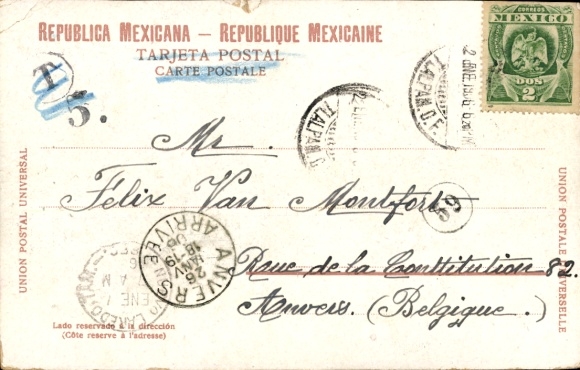 REPUBLICA MEXICANA — REPUBLIQUE MEXICAINE
TARJETA POSTAL
CARTE POSTALE
CORREOS
MEXICO
DOS
2
T
5.
TLALPAN D.F.
TLALPAN D.F.
Mr.
Félix Van Montfort
69
Rue de la Constitution 82.
Anvers. (Belgique.)
ANVERS
ARRIVÉE
UNION POSTAL UNIVERSAL
UNION POSTALE UNIVERSELLE
LAREDO
ENE
Lado reservado à la dirección
(Côte reserve à l'adresse)